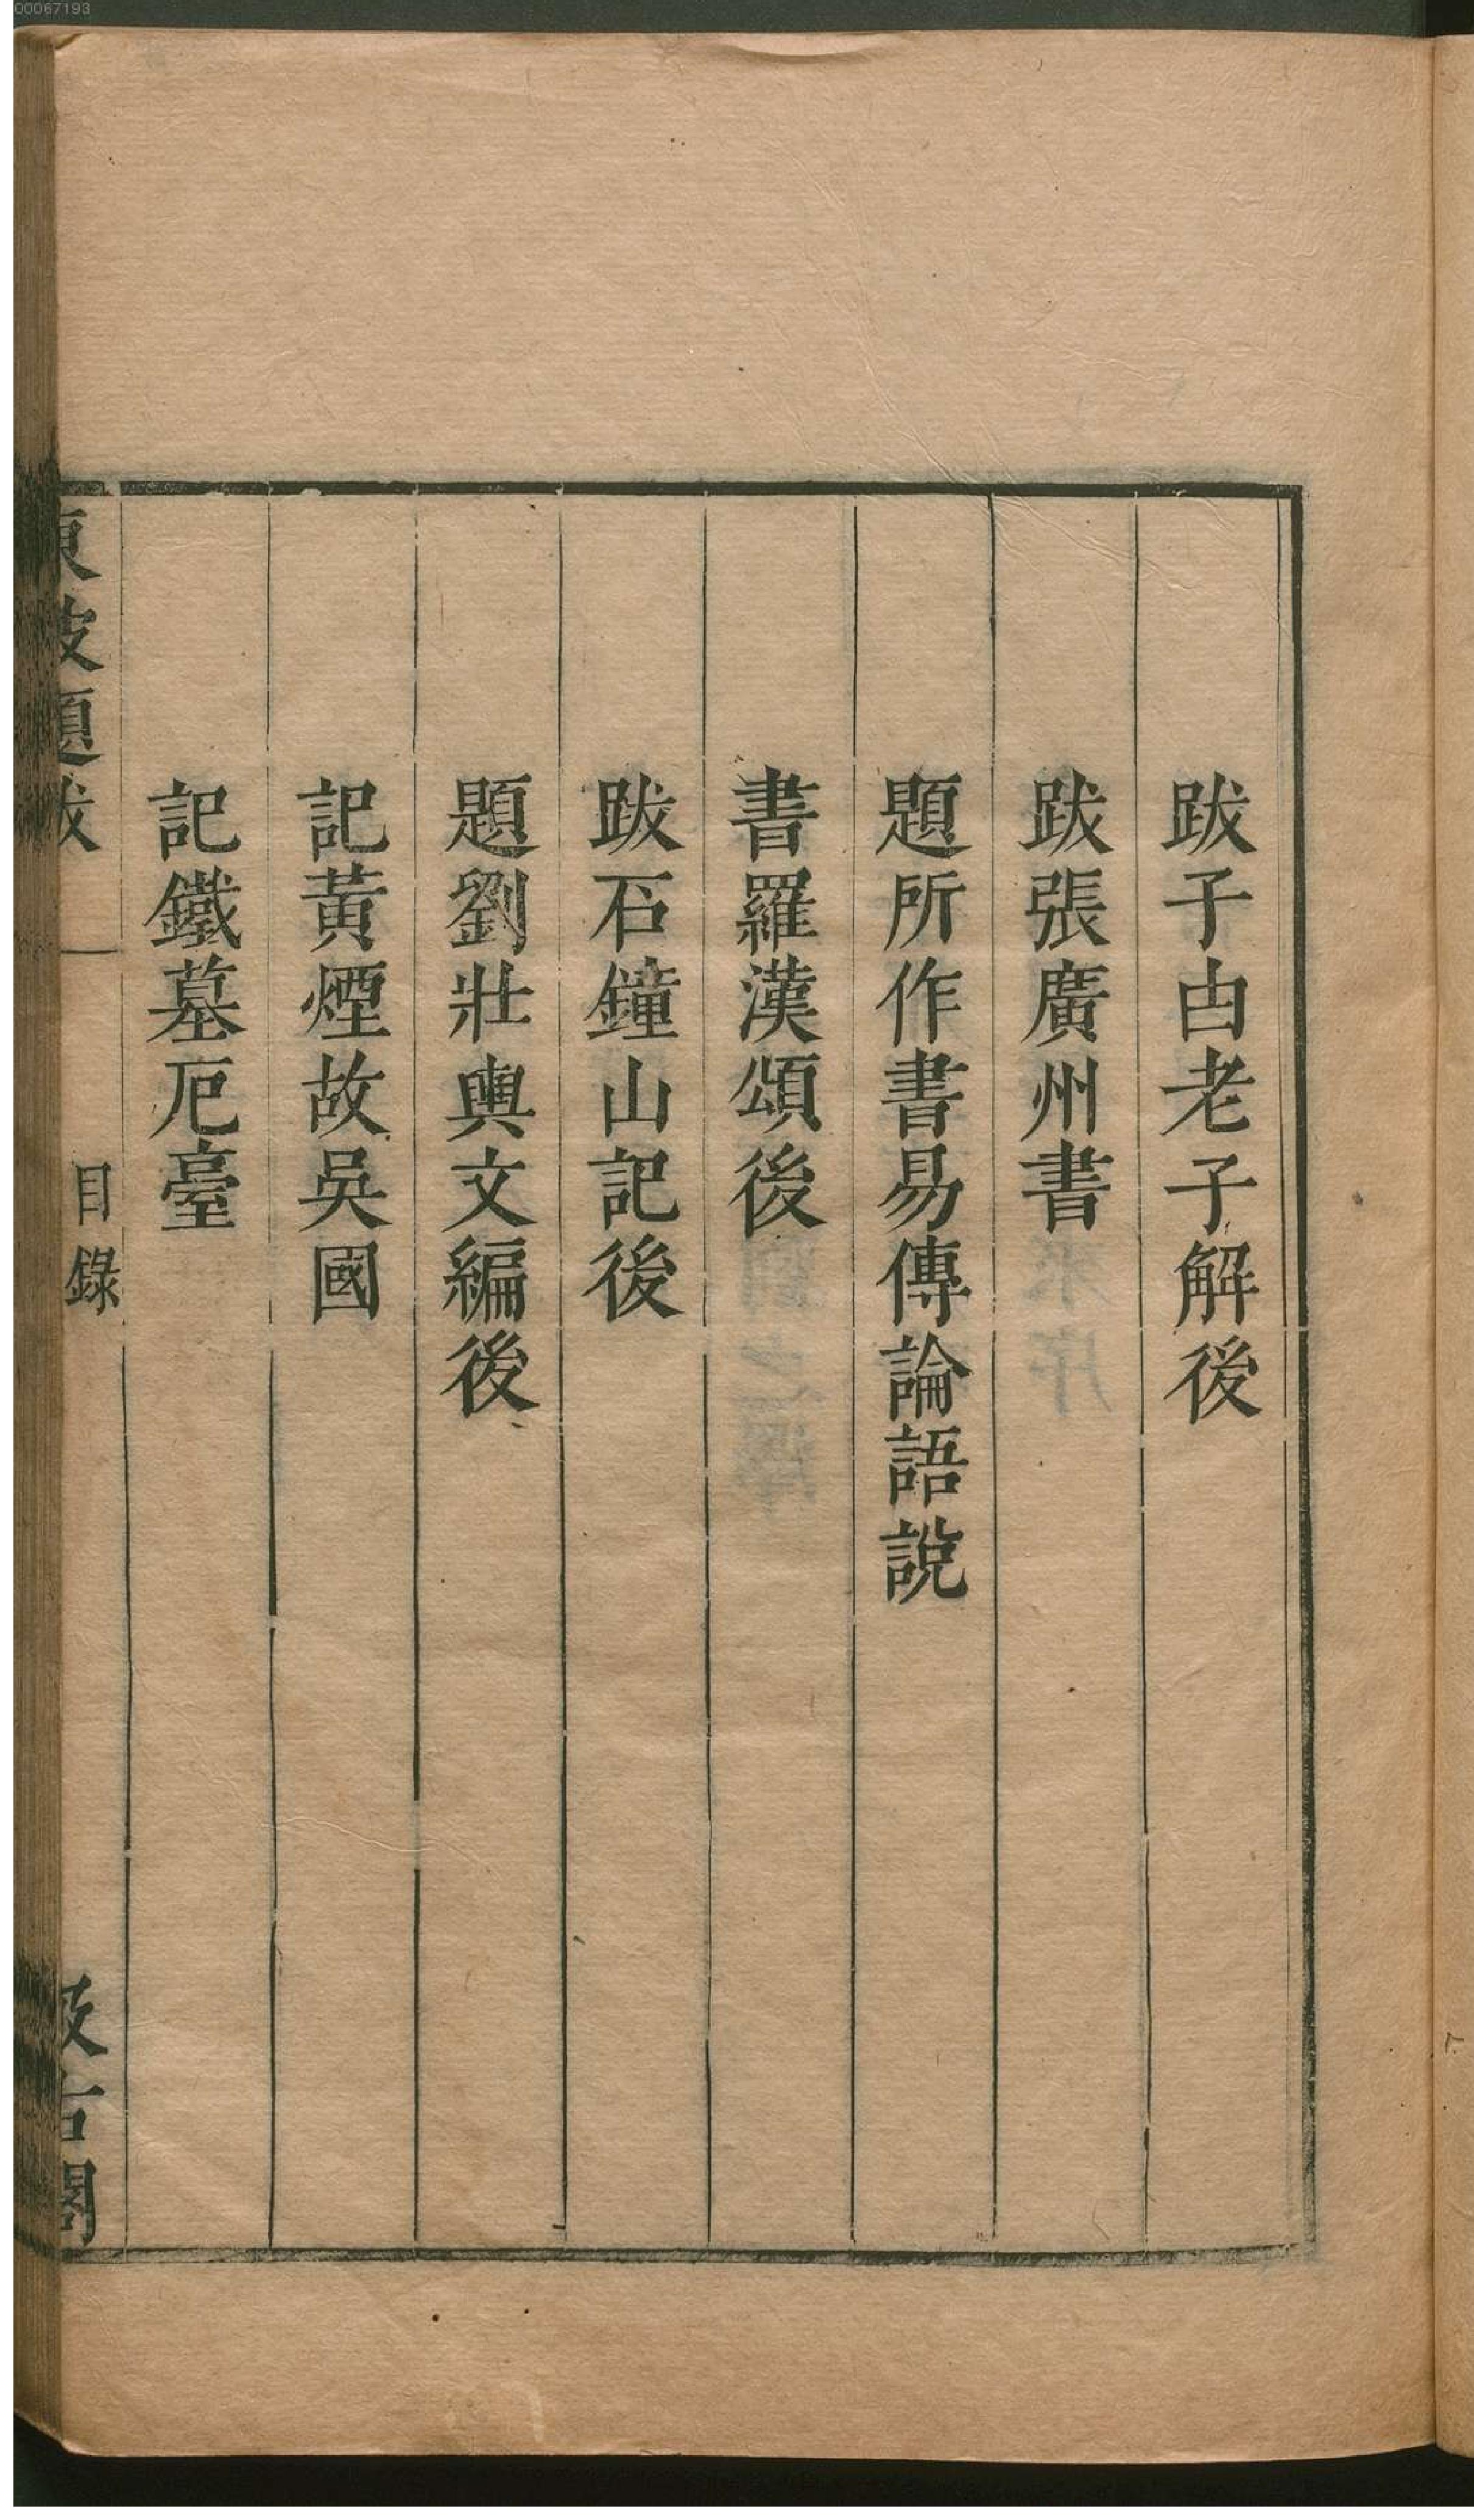 跋子由老子解後
跋張廣州書
題所作書易傳論語說
書羅漢頌後
跋石鐘山記後
題劉壯輿文編後
記黃煙故吳國
記鐵墓厄臺
東坡題跋
目錄
汲古閣
00067193